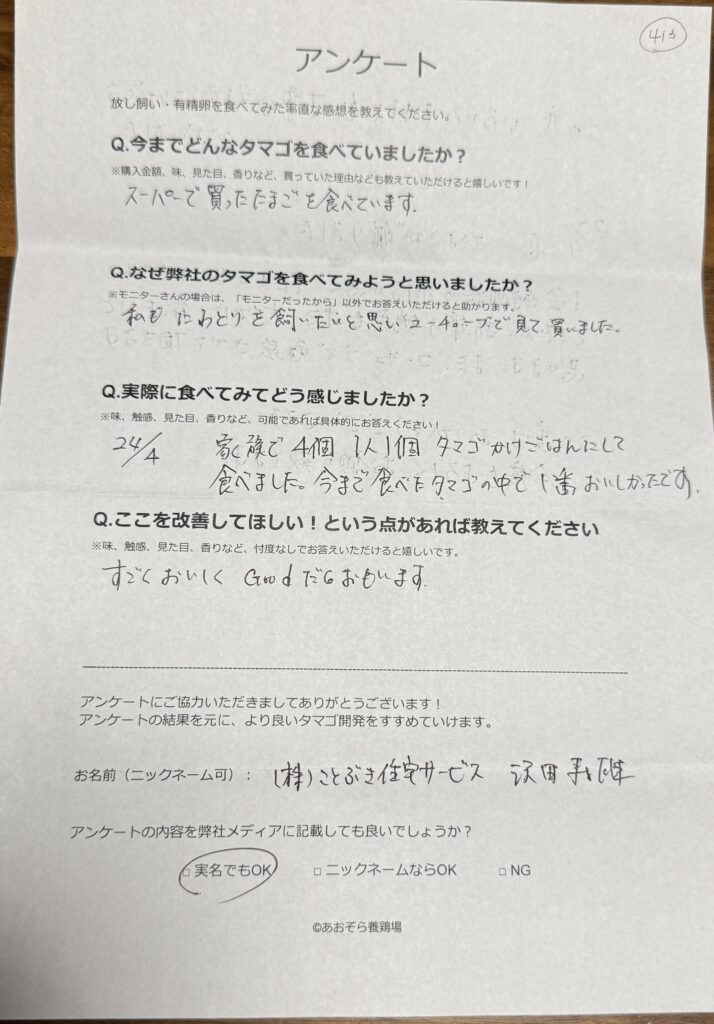 413
アンケート
放し飼い・有精卵を食べてみた率直な感想を教えてください。
Q.今までどんなタマゴを食べていましたか？
※購入金額、味、見た目、香りなど、買っていた理由なども教えていただけると嬉しいです！
スーパーで買ったたまごを食べています。
Q.なぜ弊社のタマゴを食べてみようと思いましたか？
※モニターさんの場合は、「モニターだったから」以外でお答えいただけると助かります。
私もにわとりを飼いたいと思いユーチューブで見て、買いました。
Q.実際に食べてみてどう感じましたか？
※味、触感、見た目、香りなど、可能であれば具体的にお答えください！
24/4 家族で4個 1人1個 タマゴかけごはんにして
食べました。今まで食べたタマゴの中で1番おいしかったです。
Q.ここを改善してほしい！という点があれば教えてください
※味、触感、見た目、香りなど、忖度なしでお答えいただけると嬉しいです。
すごくおいしく Goodだとおもいます。
アンケートにご協力いただきましてありがとうございます！
アンケートの結果を元に、より良いタマゴ開発をすすめていけます。
お名前（ニックネーム可）： (株)ことぶき住宅サービス 沢田
アンケートの内容を弊社メディアに記載しても良いでしょうか？
□ 実名でもOK □ ニックネームならOK □ NG
©あおぞら養鶏場